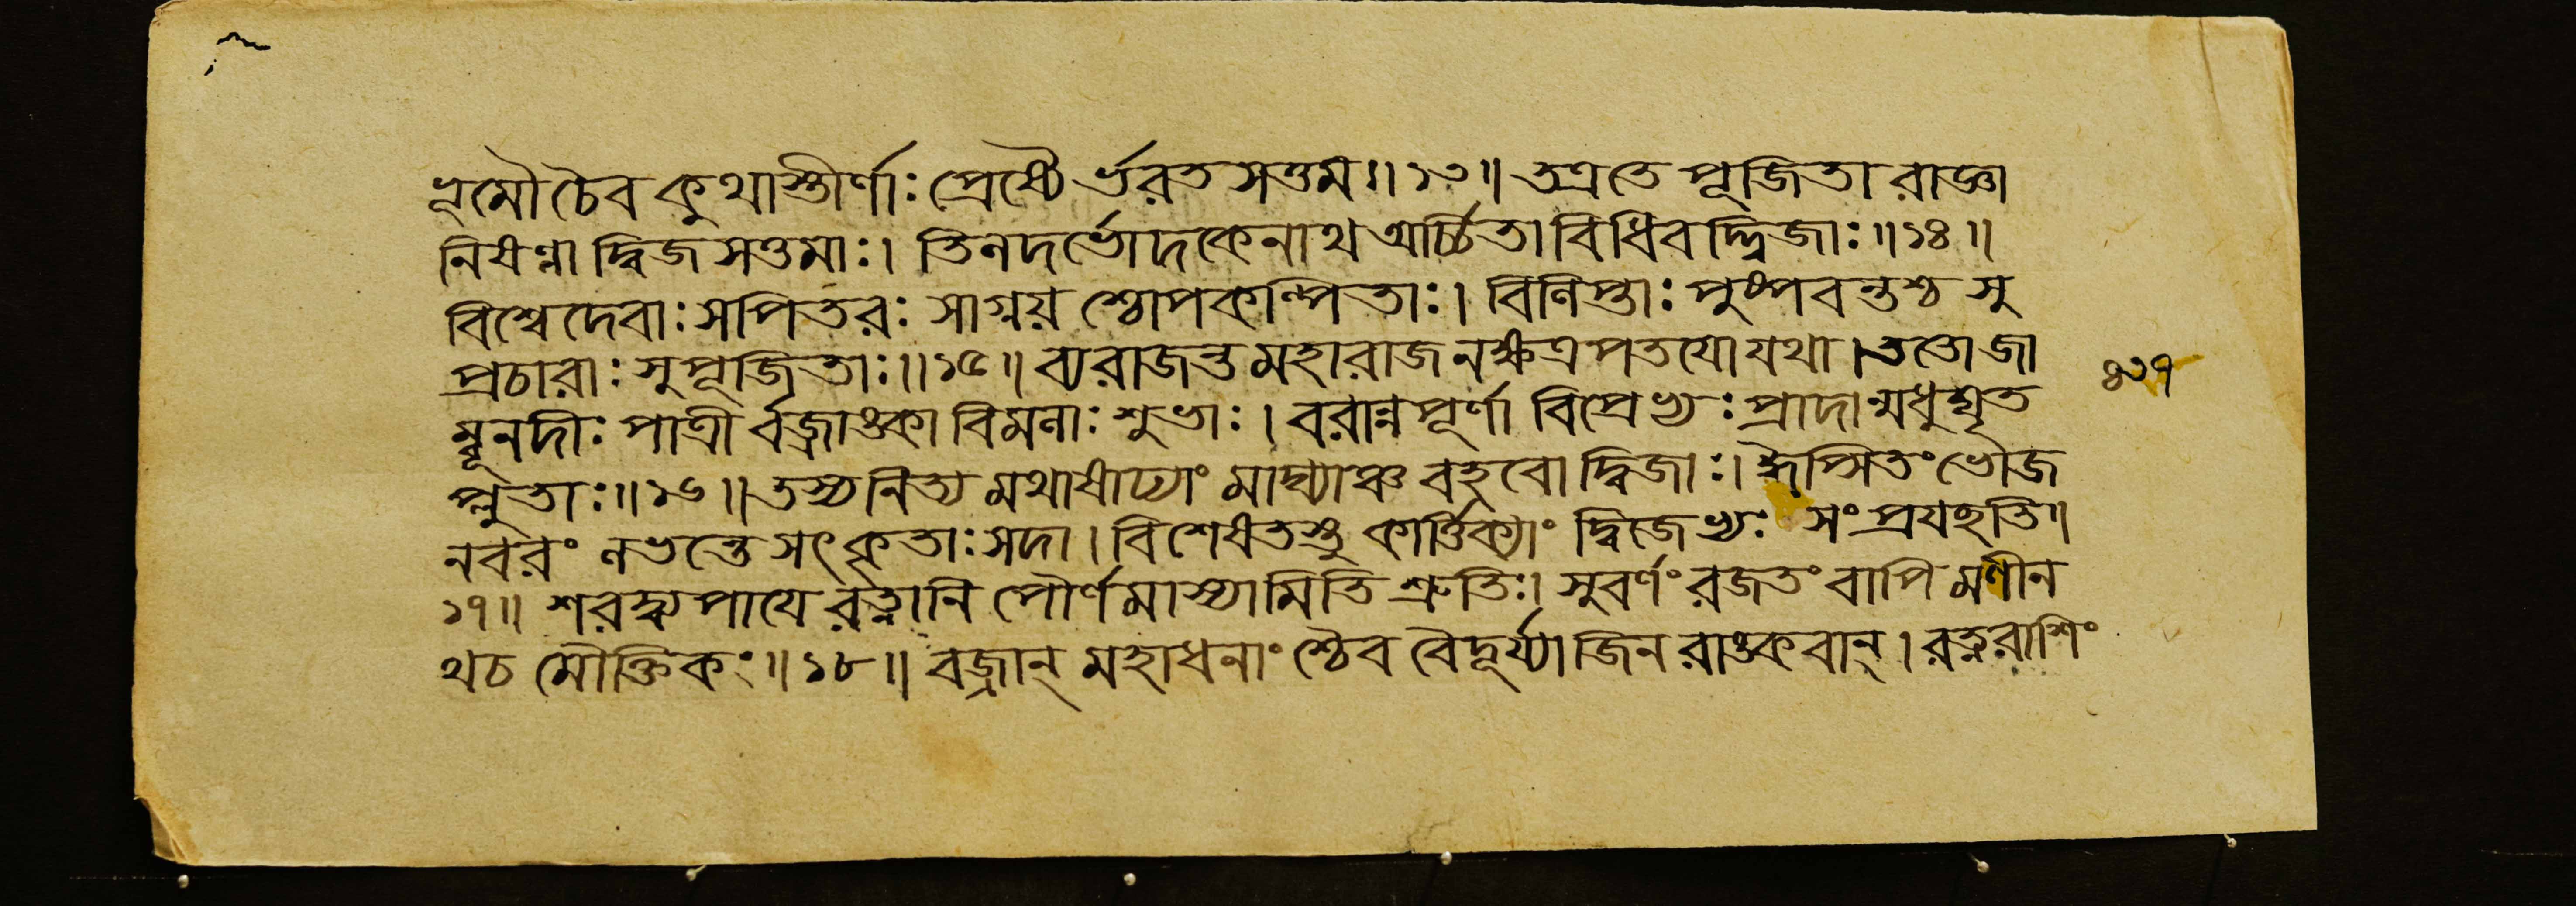 ভূমৌ চৈব কুথাস্তীর্ণাঃ প্রেষ্যৈ র্ভরত সত্তম॥ ১৩॥ তত্রতে পূজিতা রাজ্ঞা
নিষণ্ণা দ্বিজ সত্তমাঃ। তিলদর্ভোদকেনাথ অর্চ্চিতা বিধিবদ্দ্বিজাঃ॥ ১৪॥
বিশ্বেদেবাঃ সপিতরঃ সাগ্নয় শ্চোপকল্পিতাঃ। বিলিপ্তাঃ পুষ্পবন্তশ্চ সু
প্রচারাঃ সুপূজিতাঃ॥ ১৫॥ ব্যরাজন্ত মহারাজ নক্ষত্রপতযো যথা। ততোজা
ম্বূনদীঃ পাত্রী র্বজ্রাঙ্কা বিমলাঃ শুভাঃ। বরান্নপূর্ণা বিপ্রেভ্যঃ প্রাদান্মধুঘৃত
প্লুতাঃ॥ ১৬॥ তস্যনিত্য মথাষাঢ্যাং মাঘ্যাঞ্চ বহবো দ্বিজাঃ। ঈপ্সিতং ভোজ
নবরং লভন্তে সৎকৃতাঃ সদা। বিশেষতস্তু কার্ত্তিক্যাং দ্বিজেভ্যঃ সংপ্রযচ্ছতি॥
১৭॥ শরদ্ব্যপাযে রত্নানি পৌর্ণমাস্যামিতি শ্রুতিঃ। সুবর্ণং রজতং বাপি মণীন
থচ মৌক্তিকং॥ ১৮॥ বজ্রান্ মহাধনাং শ্চৈব বৈদূর্য্যাজিন রাঙ্কবান্। রত্নরাশিং
৪৩৭